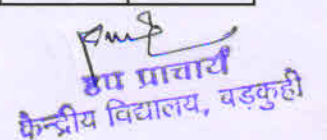 उप प्राचार्य
केन्द्रीय विद्यालय, बड़कुही